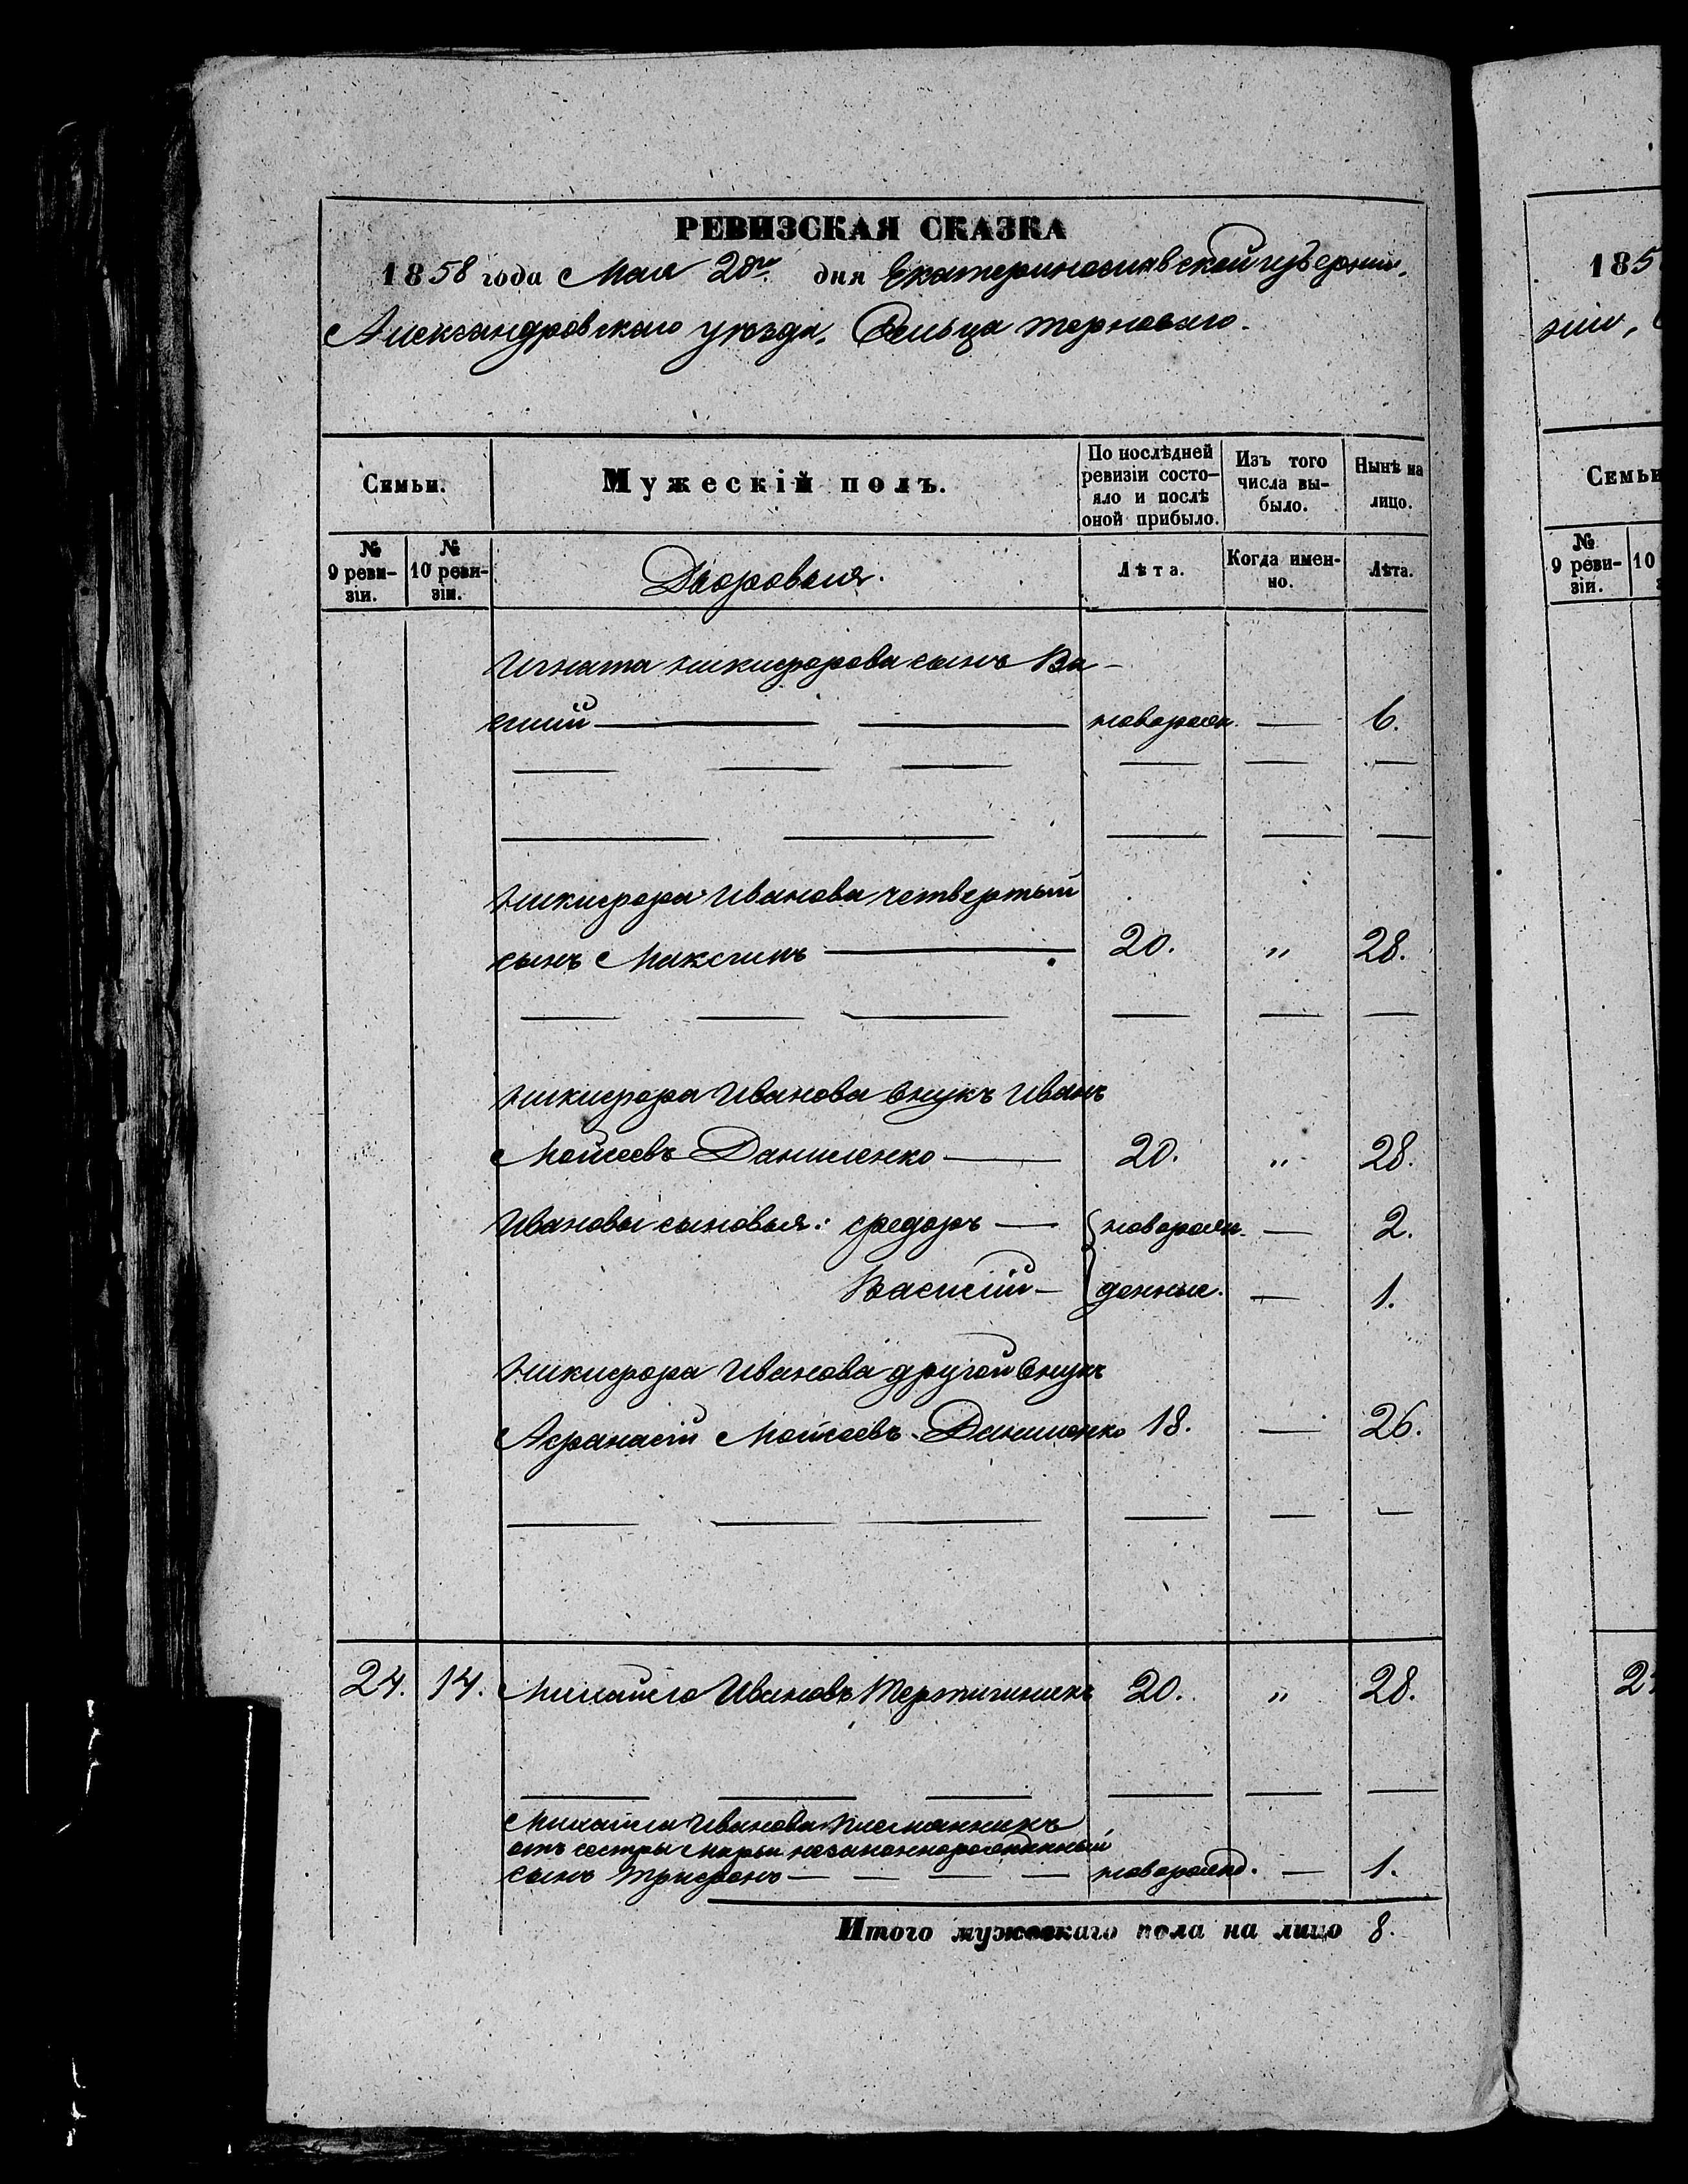 РЕВИЗСКАЯ СКАЗКА
1858 года Мая 20го дня Екатеринославской губернии,
Александровскаго уѣзда, Сельца Терноваго.
Семьи.
Мужескій полъ.
По послѣдней ревизіи состо-яло и послѣ оной прибыло.
Изъ того числа вы-было.
Нынѣ на лицо.
№ 9 реви-зіи.
№ 10 реви-зіи.
Дворовыя.
Лѣта.
Когда имен-но.
Лѣта.
Игната Никифорова сынъ Ва-
силій — — новорожд. — 6.
Никифора Иванова четвертый
сынъ Максимъ — 20. " 28.
Никифора Иванова внукъ Иванъ
Мойсеевъ Даниленко — 20. " 28.
Ивановы сыновья: Федоръ — новорож- — 2.
Василій — денные. — 1.
Никифора Иванова другой внукъ
Афанасій Мойсеевъ Даниленко 18. — 26.
24. 14. Михайло Ивановъ Тертишникъ 20. " 28.
Михайла Иванова племянникъ
отъ сестры Марьи незаконнорожденный
сынъ Трифонъ — — — — новорожд. — 1.
Итого мужескаго пола на лицо 8.
185
нии,
Семьи
№ 9 реви-зіи.
10